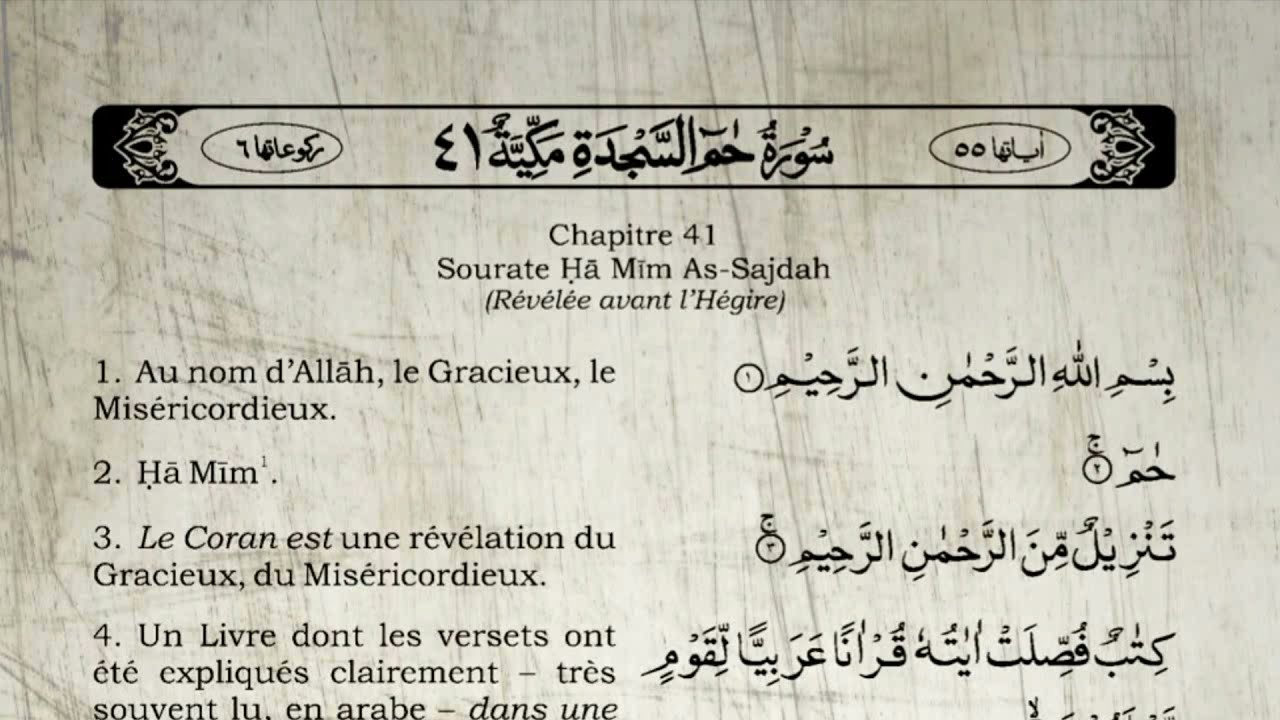 اٰیاتها ٥٥
سُوْرَةُ حٰمٓ السَّجْدَةِ مَكِّیَّةٌ ٤١
ركوعاتها ٦
Chapitre 41
Sourate Ḥā Mīm As-Sajdah
(Révélée avant l’Hégire)
1. Au nom d’Allāh, le Gracieux, le
Miséricordieux.
بِسْمِ اللّٰهِ الرَّحْمٰنِ الرَّحِیْمِ ۝١
2. Ḥā Mīm¹.
حٰمٓ ۝٢ۚ
3. Le Coran est une révélation du
Gracieux, du Miséricordieux.
تَنْزِیْلٌ مِّنَ الرَّحْمٰنِ الرَّحِیْمِ ۝٣ۚ
4. Un Livre dont les versets ont
été expliqués clairement – très
souvent lu, en arabe – dans une
كِتٰبٌ فُصِّلَتْ اٰیٰتُهٗ قُرْاٰنًا عَرَبِیًّا لِّقَوْمٍ